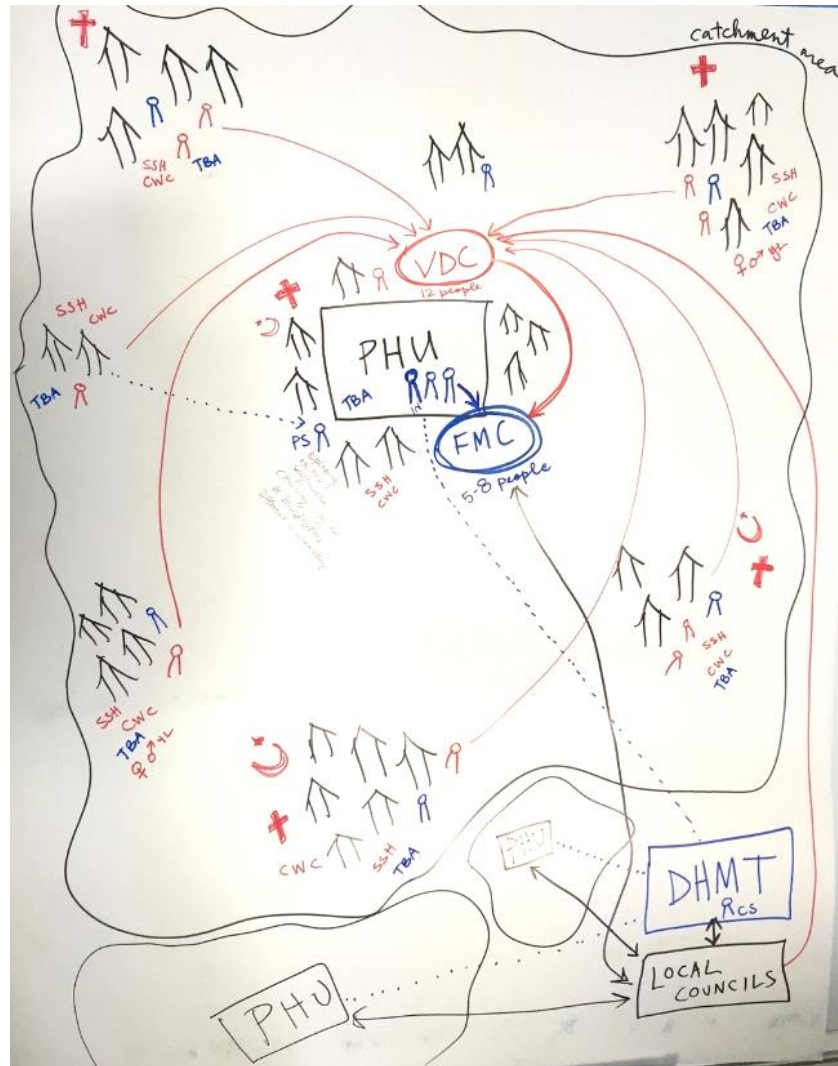 catchment
area
SSH
CWC
TBA
SSH
CWC
TBA
♀ ♂ YL
VDC
12 people
SSH
CWC
TBA
PHU
TBA
PS
FMC
5-8 people
SSH
CWC
SSH
CWC
TBA
SSH
CWC
TBA
♀ ♂ YL
CWC
SSH
TBA
PHU
DHMT
CS
LOCAL
COUNCILS
PHU